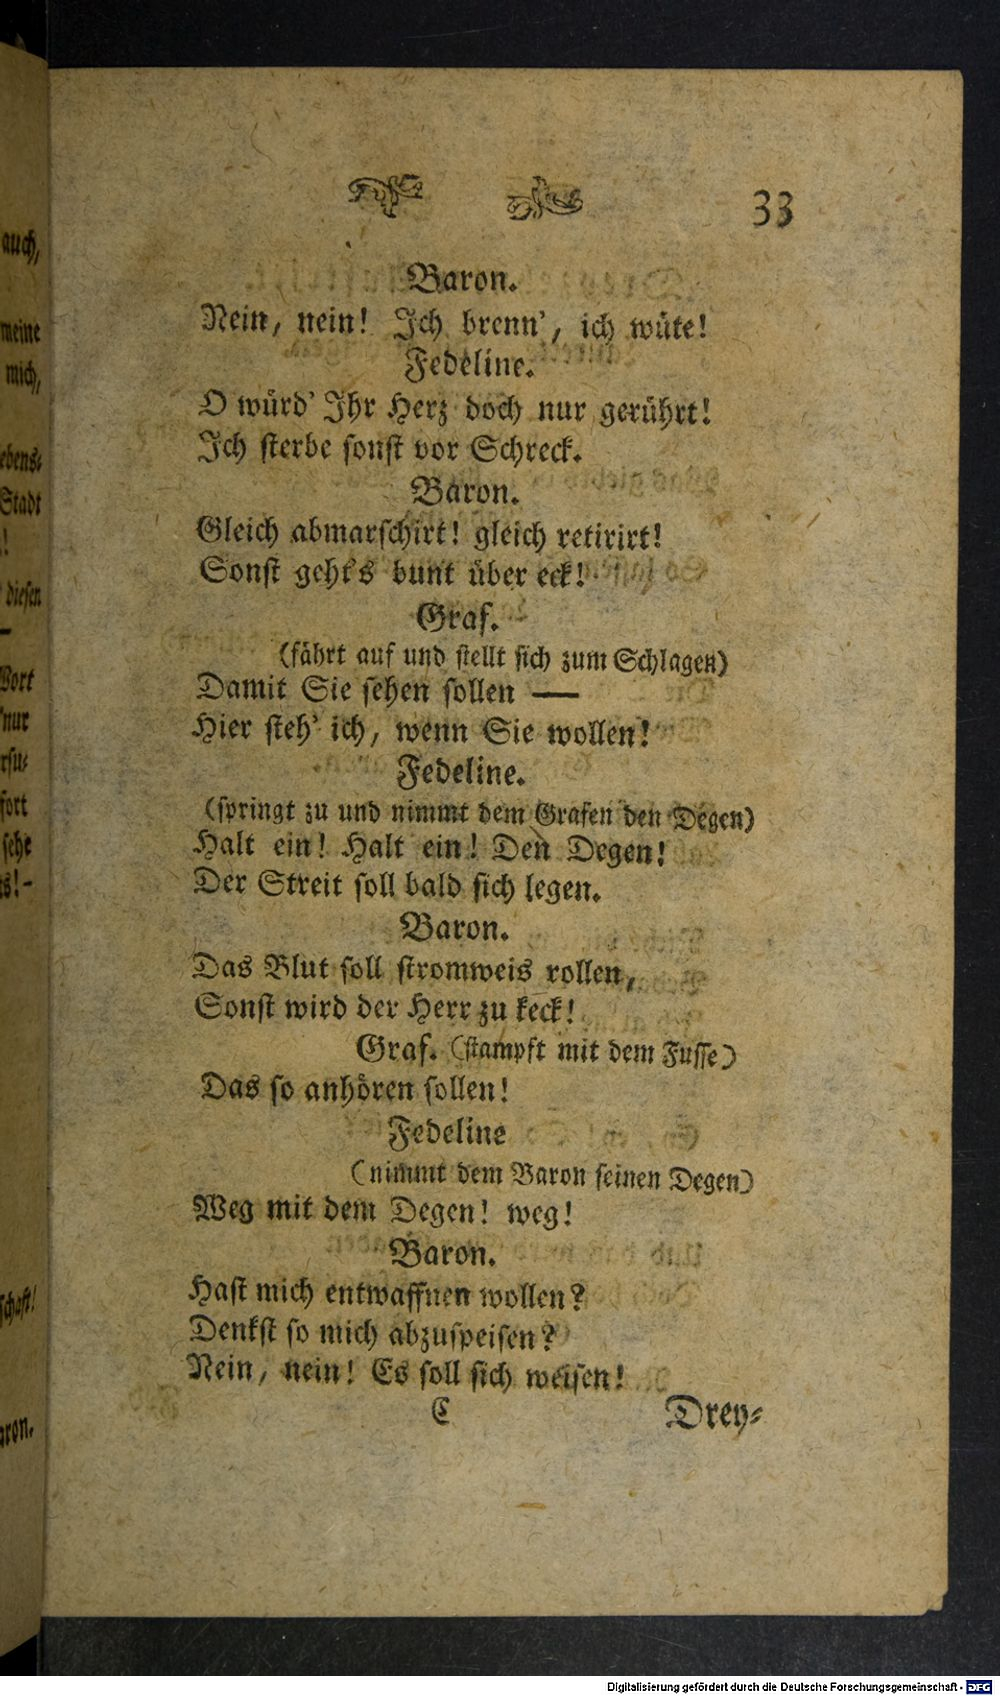 33
Baron.
Nein, nein! Ich brenn', ich wüte!
Fedeline.
O würd' Ihr Herz doch nur gerührt!
Ich sterbe sonst vor Schreck.
Baron.
Gleich abmarschirt! gleich retirirt!
Sonst geht's bunt über eck!
Graf.
(fährt auf und stellt sich zum Schlagen)
Damit Sie sehen sollen —
Hier steh' ich, wenn Sie wollen!
Fedeline.
(springt zu und nimmt dem Grafen den Degen)
Halt ein! Halt ein! Den Degen!
Der Streit soll bald sich legen.
Baron.
Das Blut soll stromweis rollen,
Sonst wird der Herr zu keck!
Graf. (stampft mit dem Fusse)
Das so anhören sollen!
Fedeline
(nimmt dem Baron seinen Degen)
Weg mit dem Degen! weg!
Baron.
Hast mich entwaffnen wollen?
Denkst so mich abzuspeisen?
Nein, nein! Es soll sich weisen!
C Drey-
auch,
meine
mich,
ebens-
Stadt
!
diesen
—
Wort
nur
rsu-
fort
sehe
s!-
schaft!
aron.
Digitalisierung gefördert durch die Deutsche Forschungsgemeinschaft - DFG